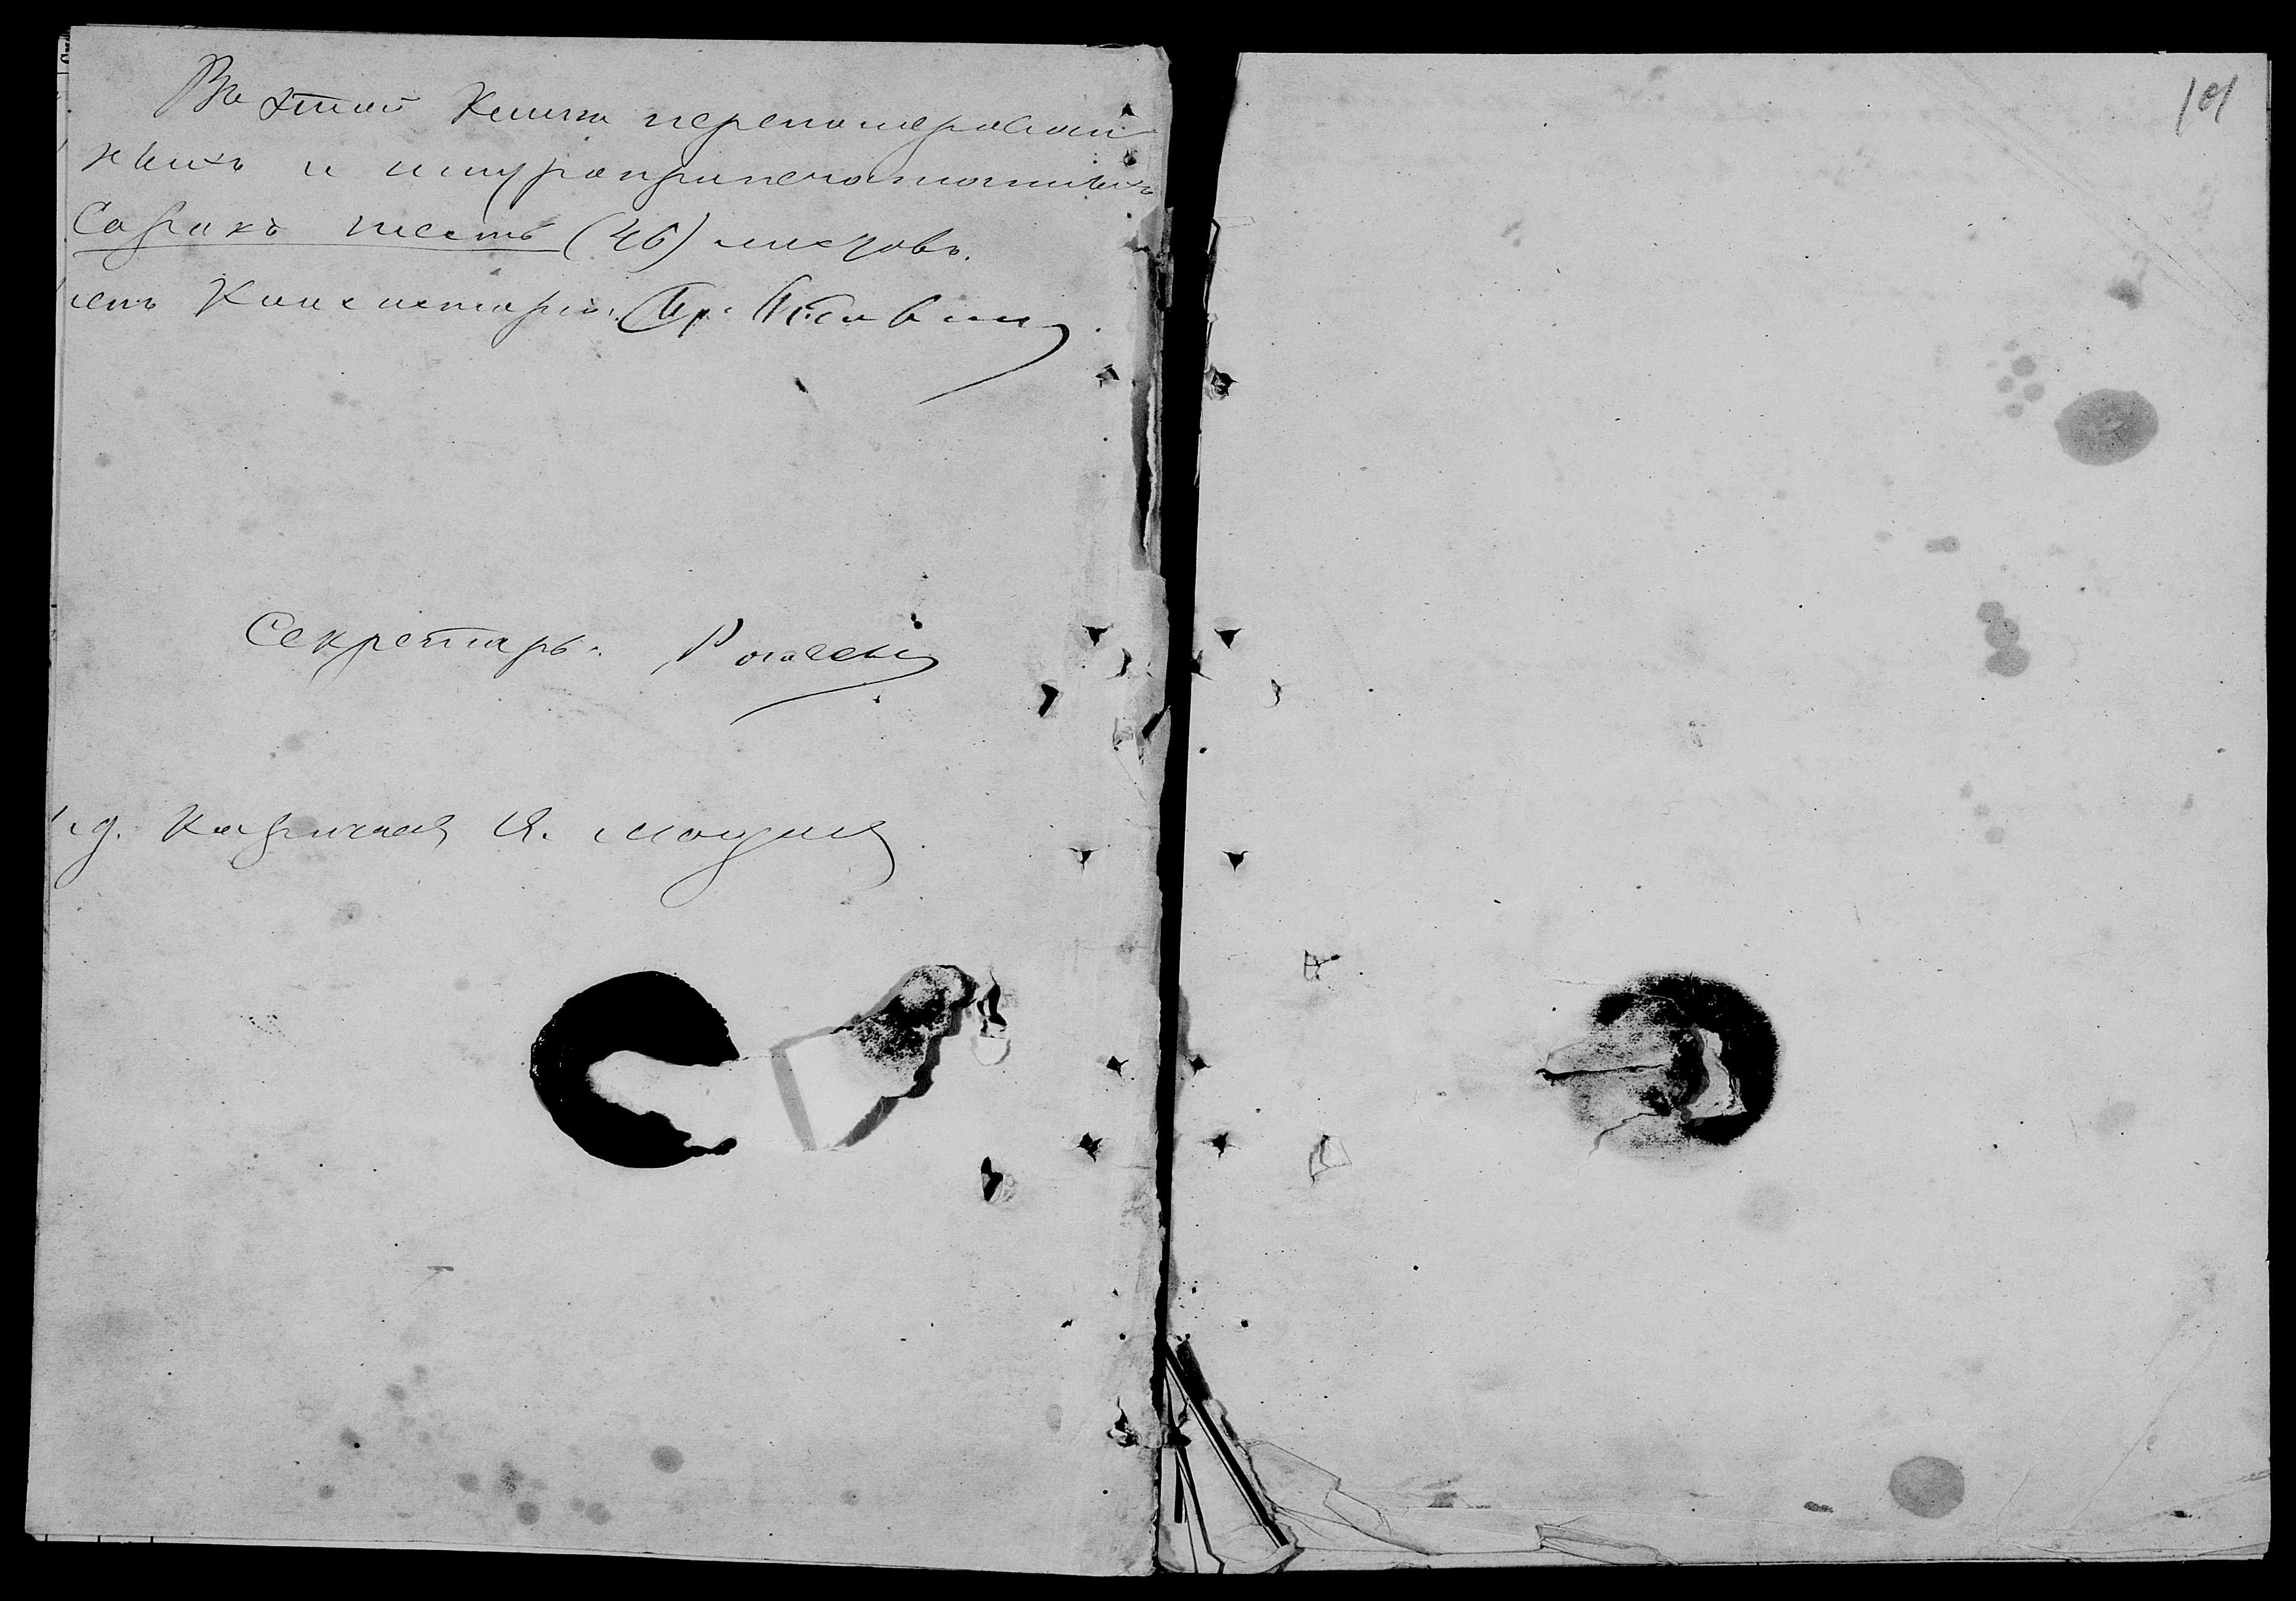 Въ этой Книги перенумерован
ныхъ и шнуроприпечатанныхъ
Сорокъ шесть (46) листовъ.
ленъ Консисторіи, Пр.
Секретарь
и.д. И.
101